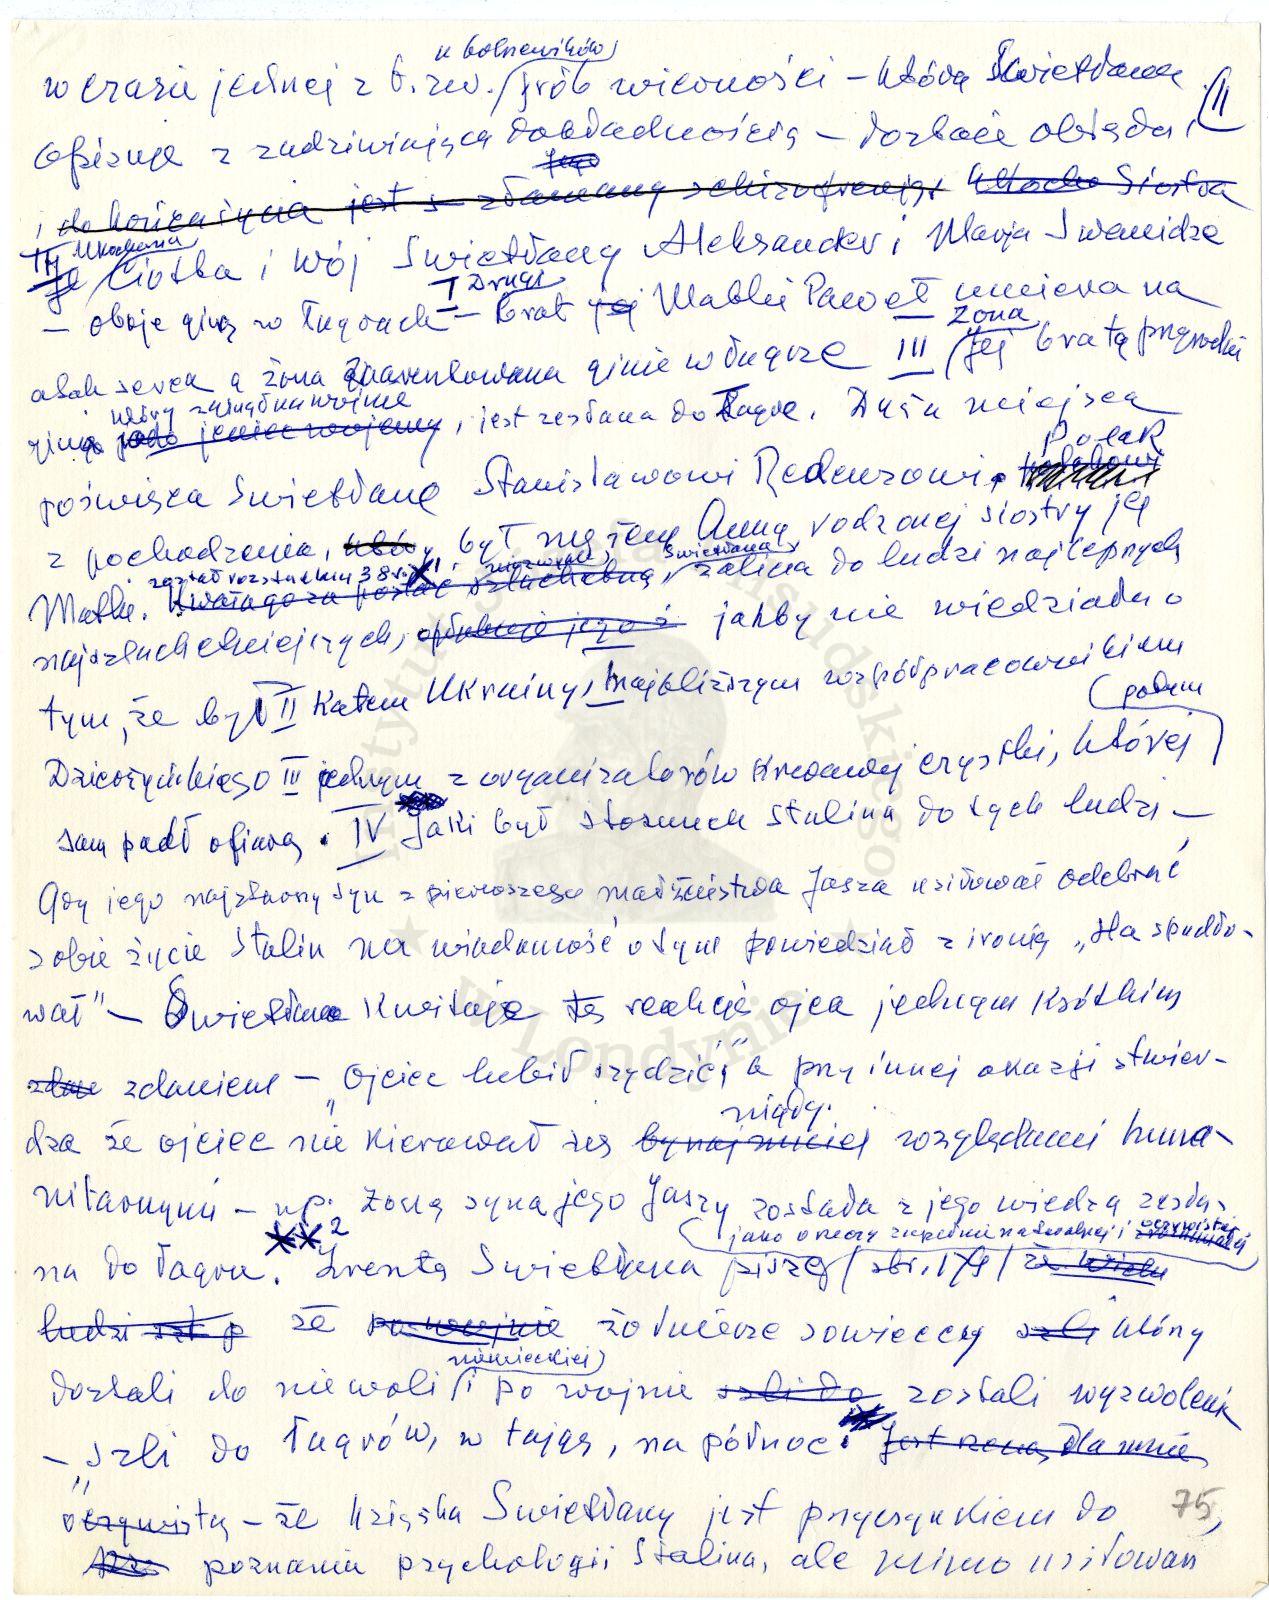 u bolszewików
w czasie jednej z t.zw. prób wierności – którą Świetłana
11
opisuje z zadziwiającą dokładnością – dostaje obłędu,
Jego
i do końca życia jest złamany schizofrenią Siostra
IV Ukochana
ciotka i wój Swietłany Aleksander i Marja Swanidze
I Drugi
– oboje giną w łagrach – brat jej Matki Paweł umiera na
żona
atak serca a żona zaaresztowana ginie w łagrze III jej brata przyrodni
który zginął na wojnie
jako jeniec wojenny, jest zesłana do Łagru. Dużo miejsca
Polak
poświęca Swietłana Stanisławowi Redensowi,
z pochodzenia, który był mężem Anny rodzonej siostry jej
został rozstrzelany 38 r. Swietłana
Matki. zalicza do ludzi najlepszych
najszlachetniejszych, jakby nie wiedziała o
tym, że był II Katem Ukrainy, najbliższym współpracownikiem
potem
Dzierżyńskiego III jednym z organizatorów krwawej czystki, której
sam padł ofiarą. IV Jaki był stosunek Stalina do tych ludzi –
Gdy jego najstarszy syn z pierwszego małżeństwa Jasza usiłował odebrać
sobie życie Stalin na wiadomość o tym powiedział z ironią „Ha spudło-
wał” – Swietłana Kwituje tę reakcję ojca jednym krótkim
zdaniem – „Ojciec lubił szydzić” a przy innej okazji stwier-
nigdy
dza że ojciec nie kierował się bynajmniej względami huma-
nitarnymi – np. żona syna jego Jaszy została z jego wiedzą zesła-
2
jako o rzeczy zupełnie naturalnej i oczywistej
na do łagru. Zresztą Swietłana pisze / str. 179 / że wielu
ludzi że po wojnie żołnierze sowieccy szli którzy
niemieckiej
dostali do niewoli i po wojnie szli do zostali wyzwoleni
– „szli do łagrów, w tajgę, na północ. Jest rzeczą dla mnie
oczywistą – że książka Swietłany jest przyczynkiem do
75
poznania psychologii Stalina, ale mimo usiłowań